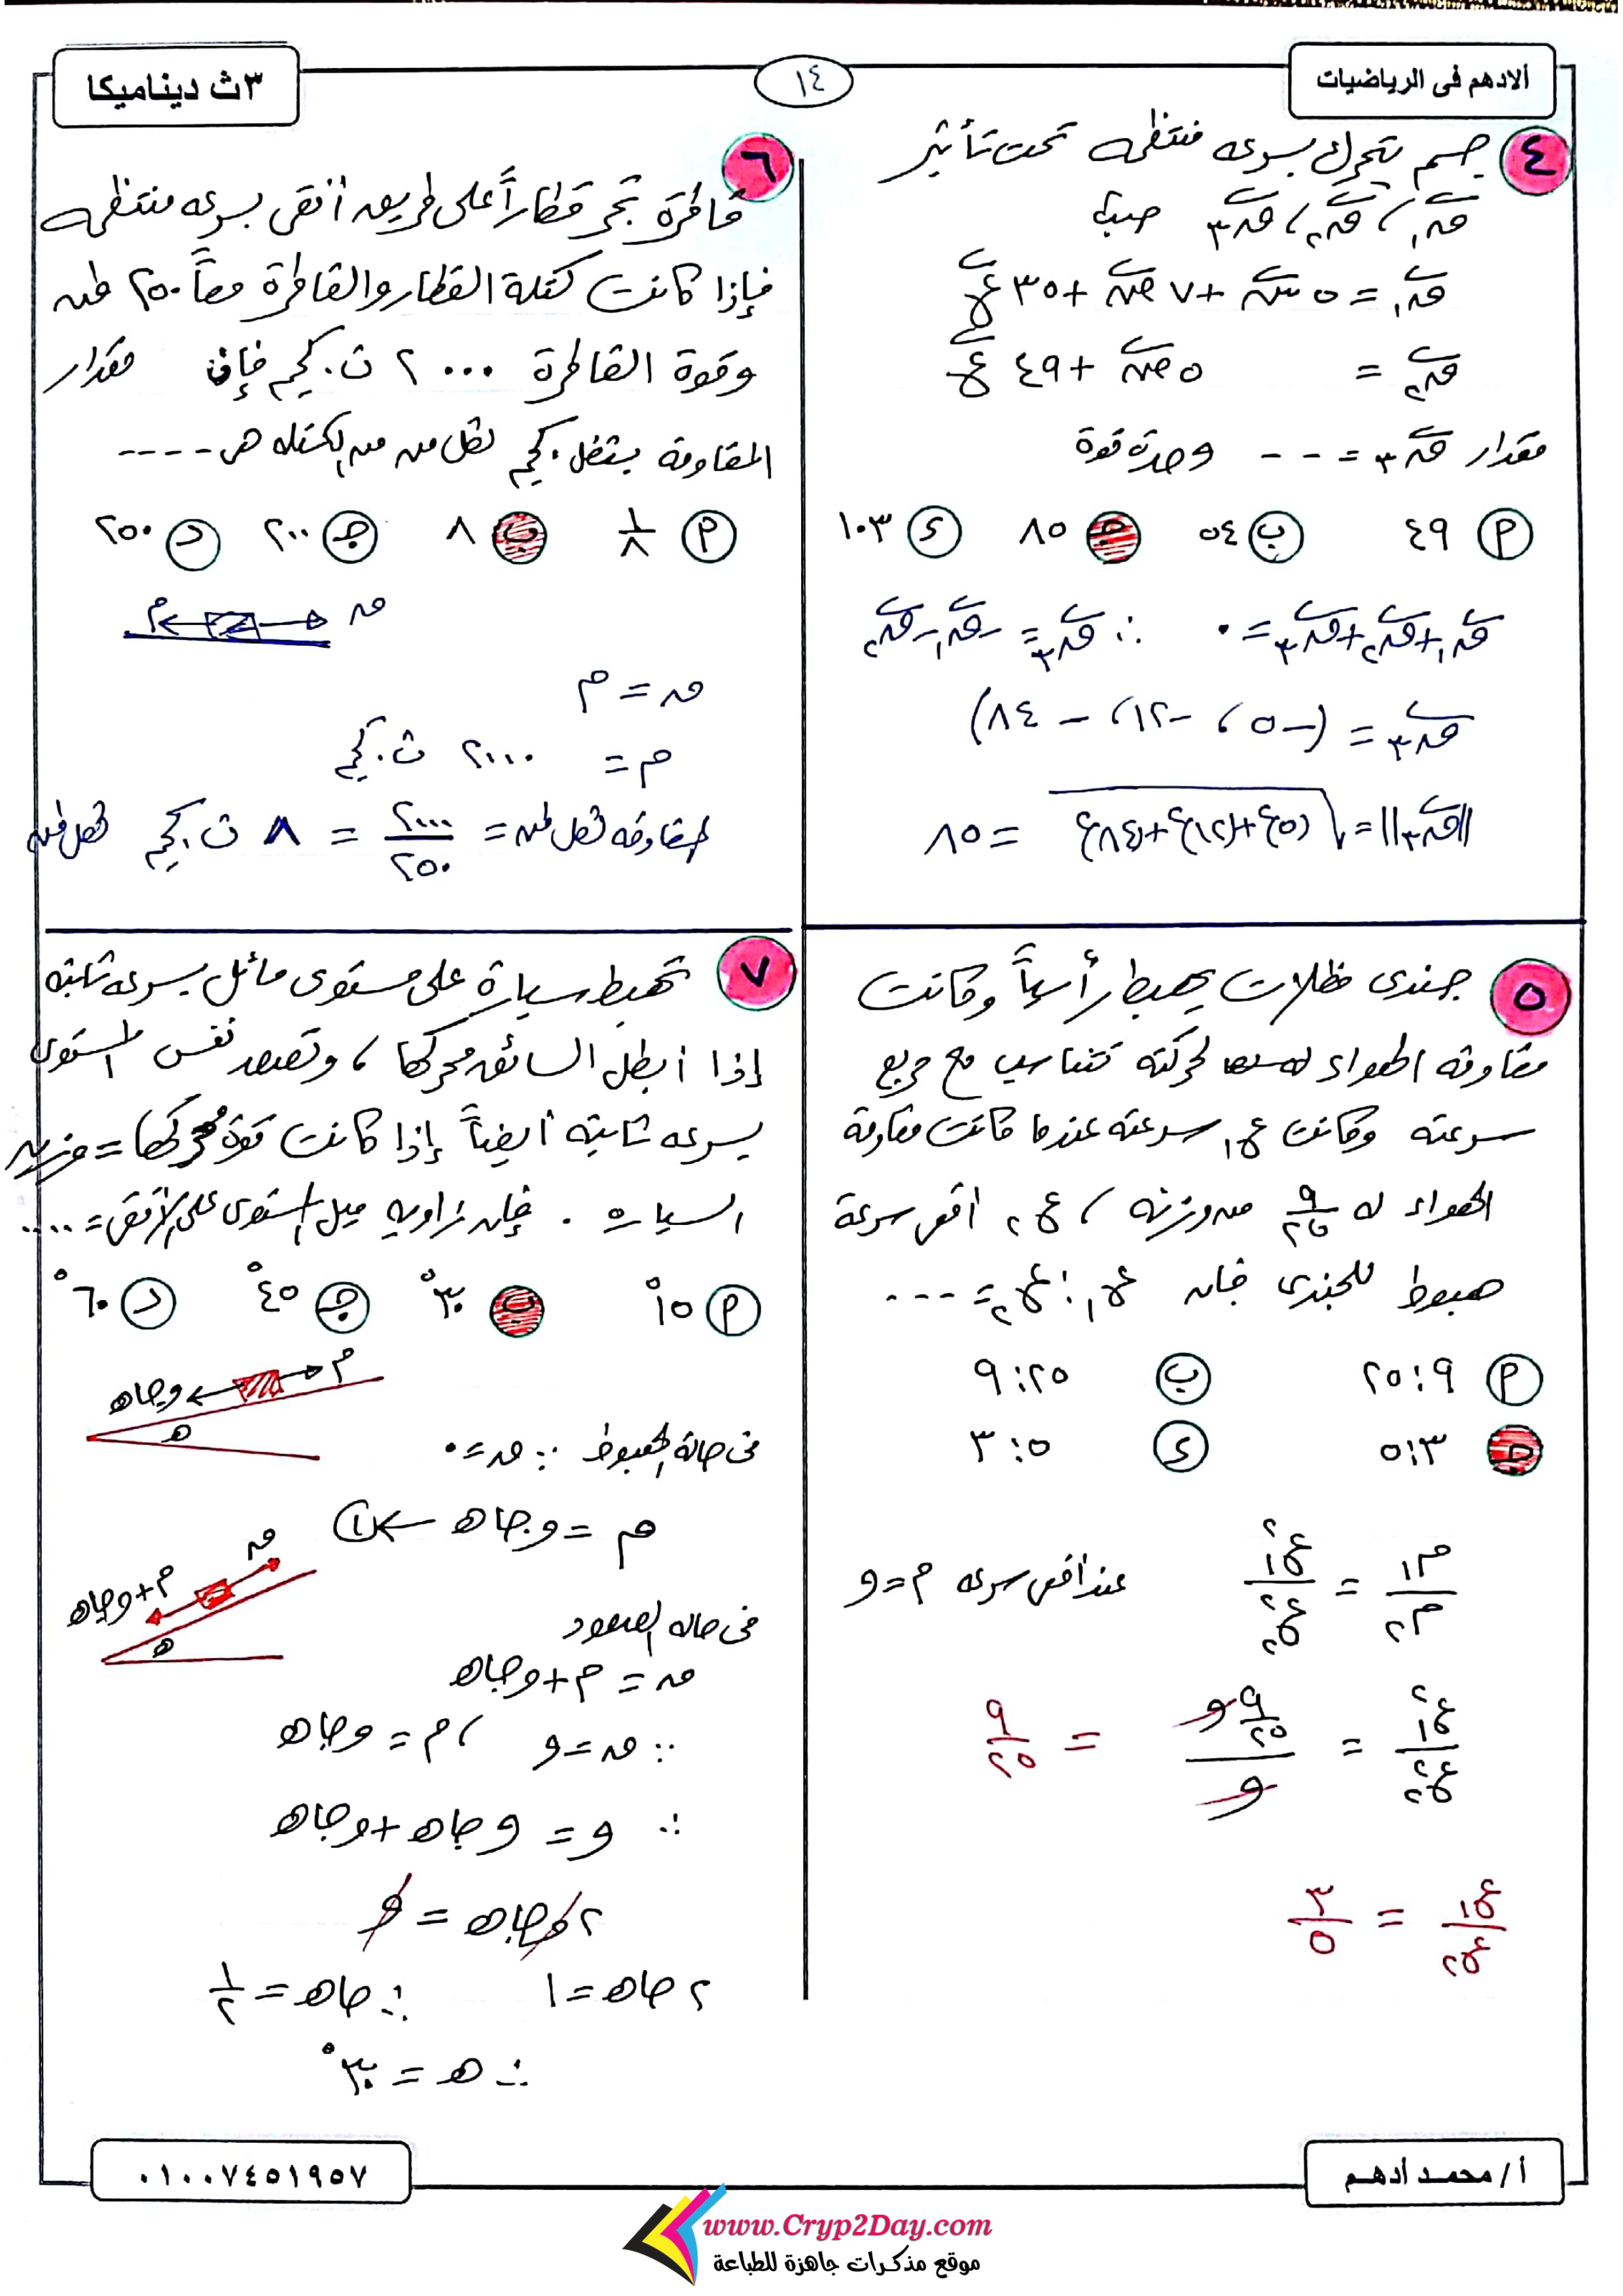 ألادهم فى الرياضيات
١٤
٣ث ديناميكا
٤ جسم يتحرك بسرعه منتظمه تحت تأثير
ق١ ، ق٢ ، ق٣ حيث
ق١ = ٥ س + ٧ ص + ٣٥ ع
ق٢ = ٥ ص + ٤٩ ع
مقدار ق٣ = --- وحدة قوة
أ ٤٩ ب ٥٤ ج ٨٥ د ١٠٣
ق١ + ق٢ + ق٣ = ٠ ∴ ق٣ = -ق١ - ق٢
ق٣ = (-٥ ، -١٢ ، -٨٤)
||ق٣|| = √(٥)٢+(١٢)٢+(٨٤)٢ = ٨٥
٥ جندى مظلات يهبط رأسياً وكانت
مقاومة الهواء لحركته تتناسب مع مربع
سرعته وكانت ع١ سرعته عندما كانت مقاومة
الهواء له ٩/٢٥ من وزنه ، ع٢ اقصى سرعة
هبوط للجندى فان ع١ : ع٢ = ---
أ ٩ : ٢٥ ب ٢٥ : ٩
ج ٣ : ٥ د ٥ : ٣
م١/م٢ = ع١٢/ع٢٢ عند اقصى سرعه م = و
ع١٢/ع٢٢ = ٩/٢٥ و/و = ٩/٢٥
ع١/ع٢ = ٣/٥
٦
قاطرة تجر قطاراً على طريق أفقى بسرعه منتظمه
فإذا كانت كتلة القطار والقاطرة معاً ٢٥٠ طن
وقوة القاطرة ٢٠٠٠ ث.كجم فإن مقدار
المقاومة بثقل.كجم لكل طن من الكتله هى ----
أ ١/٨ ب ٨ ج ٢٠٠ د ٢٥٠
م ق
ق = م
م = ٢٠٠٠ ث.كجم
المقاومه لكل طن = ٢٠٠٠/٢٥٠ = ٨ ث.كجم لكل طن
٧ تهبط سيارة على مستوى مائل بسرعه ثابته
إذا أبطل السائق محركها ، وتصعد نفس المستوى
بسرعه ثابته أيضاً إذا كانت قوة محركها = وزن
السياره . فإن زاويه ميل المستوى على الأفقى = ....
أ ١٥° ب ٣٠° ج ٤٥° د ٦٠°
م
و جا هـ
هـ
فى حالة الهبوط ∵ ق = ٠
م = و جا هـ ← ١
ق
م + و جا هـ
هـ
فى حاله الصعود
ق = م + و جا هـ
∵ ق = و ، م = و جا هـ
∴ و = و جا هـ + و جا هـ
٢ و جا هـ = و
٢ جا هـ = ١ ∴ جا هـ = ١/٢
∴ هـ = ٣٠°
أ / محمـد أدهـم
٠١٠٠٧٤٥١٩٥٧
www.Cryp2Day.com
موقع مذكرات جاهزة للطباعة